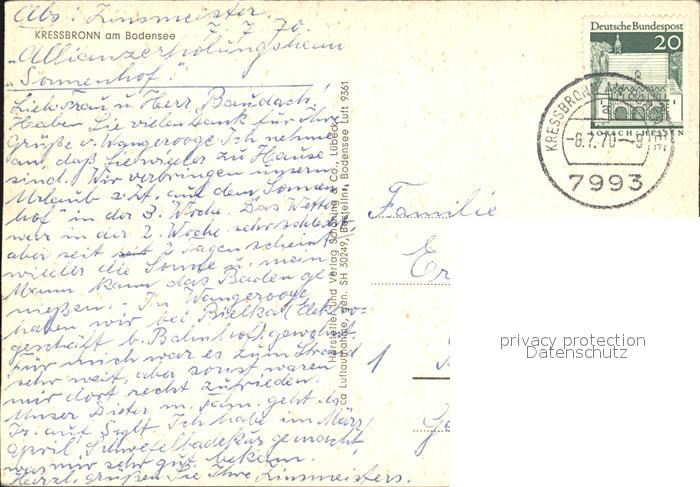 Abs: Zinsmeister
7. 7. 70.
KRESSBRONN am Bodensee
"Allianzerholungsheim
"Sonnenhof."
Liebe Frau u. Herr Baudach!
Haben Sie vielen Dank für Ihre
Grüße v. Wangerooge. Ich nehme
an daß Sie wieder zu Hause
sind. Wir verbringen unsern
Urlaub z. Zt. auf dem "Sonnen
hof" in der 3. Woche. Das Wetter
war in der 2. Woche sehr schlecht,
aber seit 2 Tagen scheint
wieder die Sonne u. mein
Mann kann das Baden ge
nießen. - In Wangerooge
haben wir bei Bielka (Elektro-
geschäft b. Bahnhof) gewohnt.
Für mich war es zum Strand
sehr weit, aber sonst waren
wir dort recht zufrieden.
Unser Dieter m. Fam. geht es
auf Sylt. Ich habe im März/
April Schwefelbadekur gemacht,
was mir sehr gut bekam.
Herzl. grüßen Sie Ihre Zinsmeisters.
Hersteller und Verlag Schöning & Co., Lübeck
ca Luftaufnahme, gen. SH 30249, Bestellnr. Bodensee Luft 9361
Deutsche Bundespost
20
LORSCH/HESSEN
KRESSBRONN
a
-8.7.70--8
7993
Familie
Er
1
privacy protection
Datenschutz